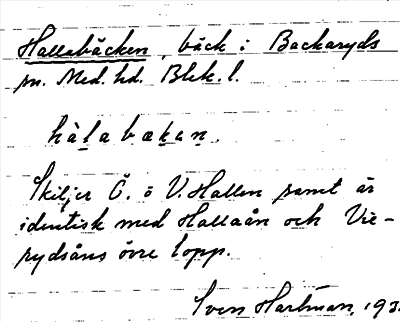 Hallabäcken, bäck i Backaryds
sn. Med. hd. Blek. l.
hàlabækan.
Skiljer Ö. o V. Hallen samt är
identisk med Hallaån och Vie-
rydsåns övre lopp.
Sven Hartman, 193